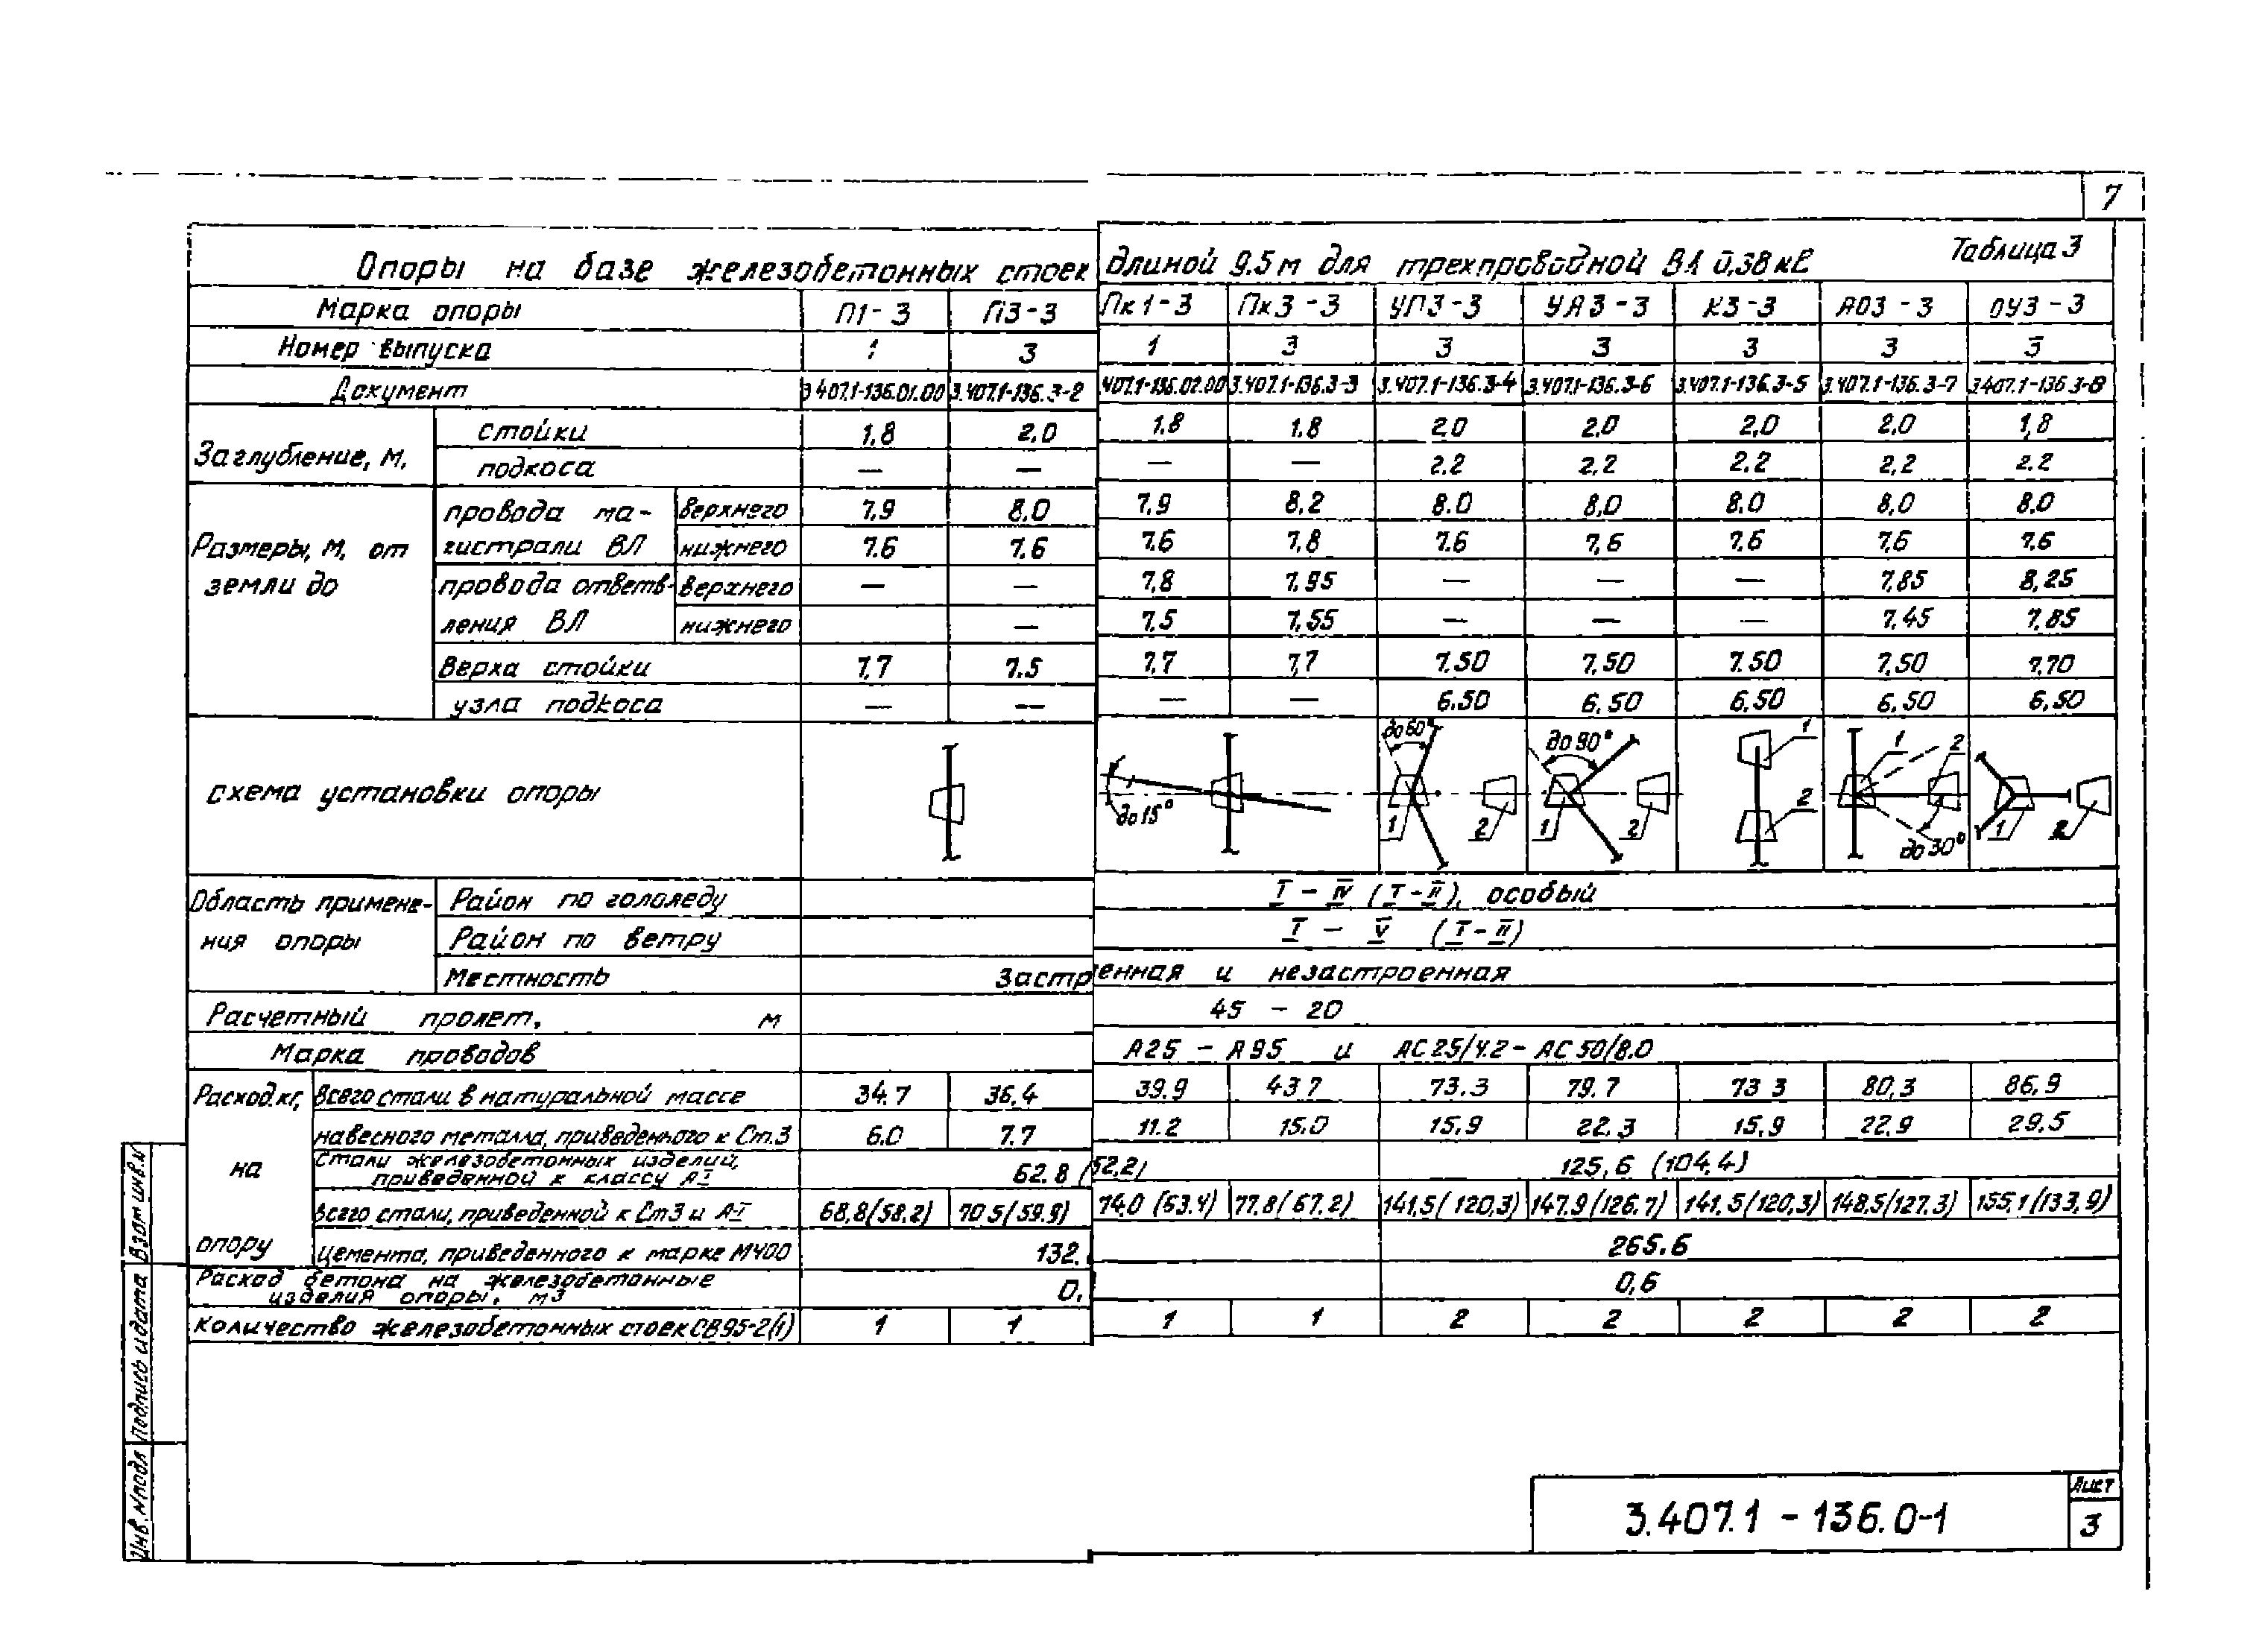 7
Таблица 3
Опоры на базе железобетонных стоек длиной 9.5 м для трехпроводной ВЛ 0,38 кВ
Марка опоры П1-3 П3-3 Пк1-3 Пк3-3 УП3-3 УА3-3 К3-3 АО3-3 ОУ3-3
Номер выпуска 1 3 1 3 3 3 3 3 3
Документ 3.407.1-136.01.00 3.407.1-136.3-2 407.1-136.02.00 3.407.1-136.3-3 3.407.1-136.3-4 3.407.1-136.3-6 3.407.1-136.3-5 3.407.1-136.3-7 3.407.1-136.3-8
Заглубление, м, стойки 1,8 2,0 1,8 1.8 2,0 2,0 2,0 2,0 1,8
подкоса — — — — 2.2 2,2 2,2 2,2 2.2
Размеры, м, от земли до
провода магистрали ВЛ верхнего 7,9 8.0 7,9 8,2 8.0 8,0 8.0 8,0 8.0
нижнего 7.6 7.6 7.6 7,8 7.6 7,6 7,6 7,6 7.6
провода ответвления ВЛ верхнего — — 7,8 7.95 — — — 7,85 8,25
нижнего — 7,5 7,55 — — — 7.45 7.85
Верха стойки 7,7 7.5 7,7 7,7 7,50 7,50 7.50 7,50 7.70
узла подкоса — — — — 6.50 6,50 6,50 6,50 6,50
схема установки опоры
до 15°
до 60° 1 2
до 90° 1 2
1 2
1 2 до 30°
1 2
Область применения опоры
Район по гололеду I – IV (I-II), особый
Район по ветру I – V (I-II)
Местность Застренная и незастроенная
Расчетный пролет, м 45 – 20
Марка проводов А25 – А95 и АС25/4.2 – АС50/8.0
Расход, кг, на опору
Всего стали в натуральной массе 34.7 36,4 39,9 43 7 73.3 79.7 73 3 80,3 86,9
навесного металла, приведенного к Ст.3 6.0 7.7 11.2 15.0 15,9 22.3 15,9 22,9 29.5
Стали железобетонных изделий, приведенной к классу А-I 62.8 (52,2) 125,6 (104,4)
всего стали, приведенной к Ст3 и А-I 68,8(58.2) 70 5(59.9) 74.0 (63.4) 77.8(67.2) 141,5(120,3) 147.9(126.7) 141,5(120,3) 148.5(127.3) 155,1(133,9)
цемента, приведенного к марке М400 132. 265.6
Расход бетона на железобетонные изделия опоры, м3 0, 0,6
Количество железобетонных стоек СВ95-2(1) 1 1 1 1 2 2 2 2 2
Взам инв.№
Подпись и дата
Инв. №подл
3.407.1 – 136.0-1
Лист
3